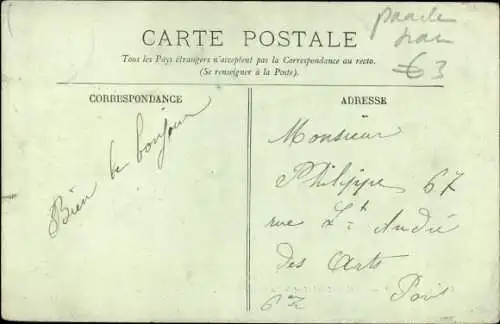 CARTE POSTALE
Tous les Pays étrangers n'acceptent pas la Correspondance au recto.
(Se renseigner à la Poste).
€3
CORRESPONDANCE
Bien le bonjour
ADRESSE
Monsieur
Philippe 67
rue St André
des Arts
Paris
6e